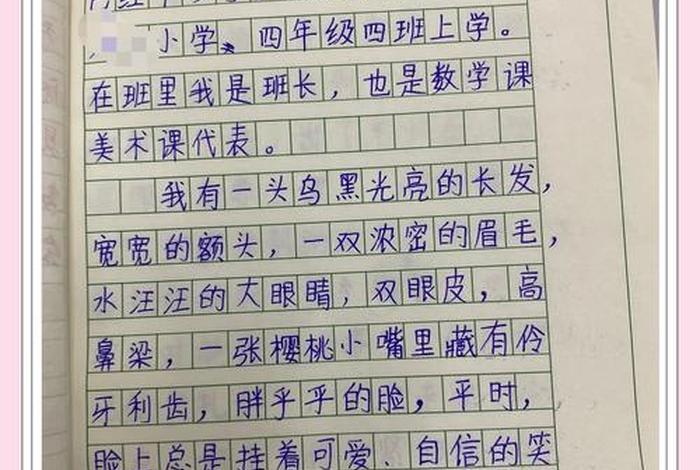 小学、四年级四班上学。
在班里我是班长，也是数学课
美术课代表。
我有一头乌黑光亮的长发，
宽宽的额头，一双浓密的眉毛，
水汪汪的大眼睛，双眼皮，高
鼻梁，一张樱桃小嘴里藏有伶
牙利齿，胖乎乎的脸，平时，
脸上总是挂着可爱、自信的笑